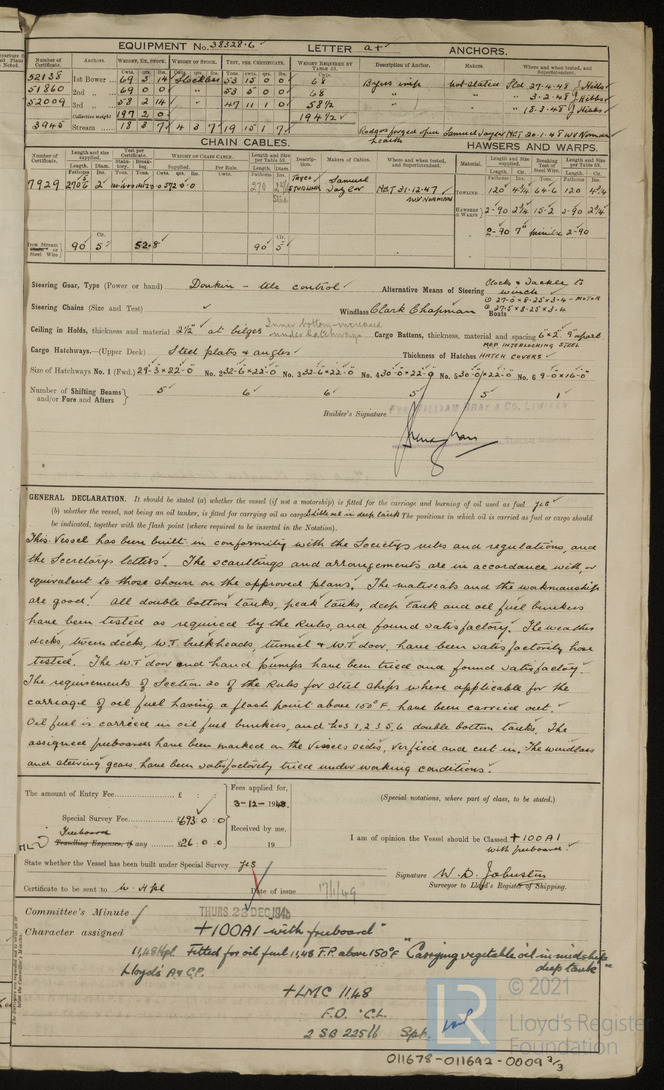 EQUIPMENT No. 38328.6 LETTER a+ ANCHORS.
Number of Certificate. Anchors. WEIGHT, EX. STOCK. WEIGHT OF STOCK. TEST, PER CERTIFICATE. WEIGHT REQUIRED BY TABLE 53. Description of Anchor. Makers. Where and when tested, and Superintendent.
52138 1st Bower 69 3 14 Stockless 53 15 0 0 68 Byers imp not stated Sld 27-4-48 J Hibbs
51860 2nd 69 0 0 53 5 0 0 68 3-2-48
52009 3rd 58 2 14 47 11 1 0 58½ 18.3.48
Collective weight 197 2 0 194½
3945 Stream 18 3 7 4 3 7 19 15 1 7 Rodgers forged steel Samuel Taylor NET 20-1-48 WV Norman
CHAIN CABLES. HAWSERS AND WARPS.
Number of Certificate. Length and size supplied. Test per Certificate. WEIGHT OF CHAIN CABLE. Length and Size per Table 53. Description. Makers of Cables. Where and when tested, and Superintendent. Material. Length and Size supplied. Breaking Test of Steel Wire. Length and Size per Table 53.
7929 270 2 270 Tayco Samuel Taylor NET 31-12-47 WV NORMAN
TOWLINE 120 4¼ 64.6 120 4¼
HAWSERS & WARPS 2-90 2¾ 15.2 2-90 2¾
2-90 7" manila 2-90
Iron Stream or Steel Wire 90 5" 52.8 90 5"
Steering Gear, Type (Power or hand) Donkin - tele control Alternative Means of Steering Blocks & Tackles to winch
Steering Chains (Size and Test) Windlass Clark Chapman Boats
Ceiling in Holds, thickness and material 2½" at bilges Inner bottom increased under hatchways Cargo Battens, thickness, material and spacing 6 x 2 9" apart
Cargo Hatchways.—(Upper Deck) Steel plates & angles Thickness of Hatches INTERLOCKING STEEL HATCH COVERS
Size of Hatchways No. 1 (Fwd.) 29-3 x 22-0 No. 2 32-6 x 22-0 No. 3 32-6 x 22-0 No. 4 30-0 x 22-0 No. 5 30-0 x 22-0 No. 6 9-0 x 16-0
Number of Shifting Beams and/or Fore and Afters 5 6 6 5 5 1
FOR WILLIAM GRAY & CO. LIMITED
Builder's Signature
GENERAL DECLARATION. It should be stated (a) whether the vessel (if not a motorship) is fitted for the carriage and burning of oil used as fuel yes
(b) whether the vessel, not being an oil tanker, is fitted for carrying oil as cargo Edible oil in deep tank The positions in which oil is carried as fuel or cargo should
be indicated, together with the flash point (where required to be inserted in the Notation).
This Vessel has been built in conformity with the Societys rules and regulations, and
the Secretarys letters. The scantlings and arrangements are in accordance with, or
equivalent to those shown on the approved plans. The materials and the workmanship
are good. All double bottom tanks, peak tanks, deep tank and oil fuel bunkers
have been tested as required by the Rules, and found satisfactory. The weather
decks, tween decks, W.T. bulkheads, tunnel & W.T. door, have been satisfactorily hose
tested. The W.T. door and hand pumps have been tried and found satisfactory.
The requirements of Section 20 of the Rules for steel ships where applicable for the
carriage of oil fuel having a flash point above 150° F. have been carried out.
Oil fuel is carried in oil fuel bunkers, and Nos 1, 2, 3, 5, 6 double bottom tanks. The
assigned freeboards have been marked on the Vessels sides, verified and cut in. The windlass
and steering gears, have been satisfactorily tried under working conditions.
The amount of Entry Fee £ : : Fees applied for, 3-12-1948 (Special notations, where part of class, to be stated.)
Special Survey Fee £673 : 0 : 0
Freeboard
Travelling Expenses, if any £26 : 0 : 0 Received by me, 19 I am of opinion the Vessel should be Classed +100A1 with freeboard
State whether the Vessel has been built under Special Survey yes
Signature W. D. Johnston
Surveyor to Lloyd's Register of Shipping.
Certificate to be sent to W. Hpl Date of issue 17/1/49
Committee's Minute THURS 23 DEC 1948
Character assigned +100A1 "with freeboard"
11,48 Hpl Fitted for oil fuel 11,48 F.P. above 150°F "Carrying vegetable oil in midship deep tank"
Lloyd's A & C.P.
+LMC 11,48
F.D. CL.
2 SB 225 lb Spt.
LR
© 2021
Lloyd's Register
Foundation
011678-011692-0009 3/3